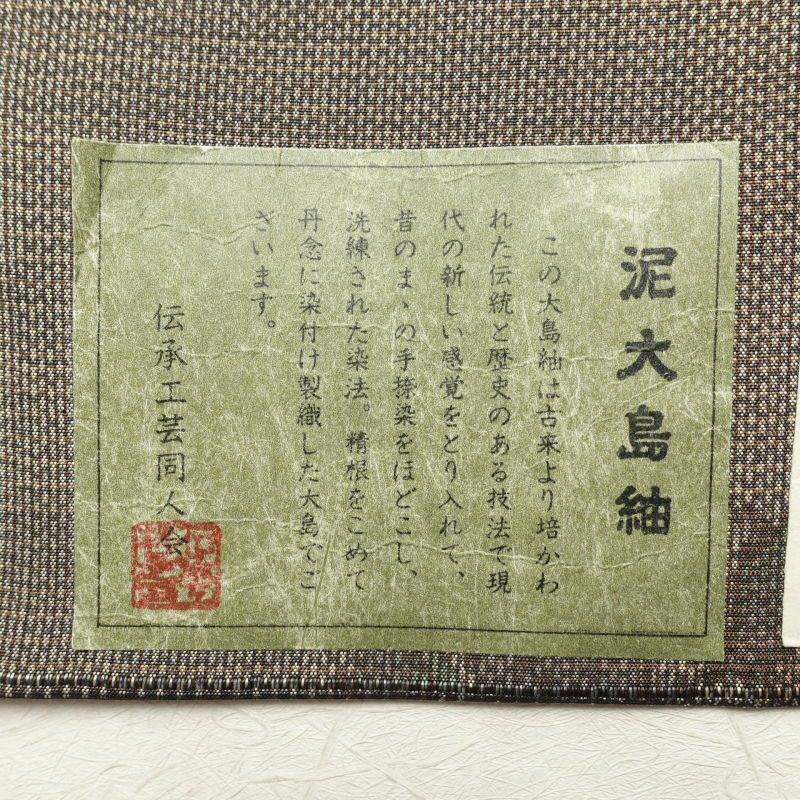 泥大島紬
この大島紬は古来より培かわ
れた伝統と歴史のある技法で現
代の新しい感覚をとり入れて、
昔のまゝの手捺染をほどこし、
洗練された染法。精根をこめて
丹念に染付け製織した大島でご
ざいます。
伝承工芸同人会